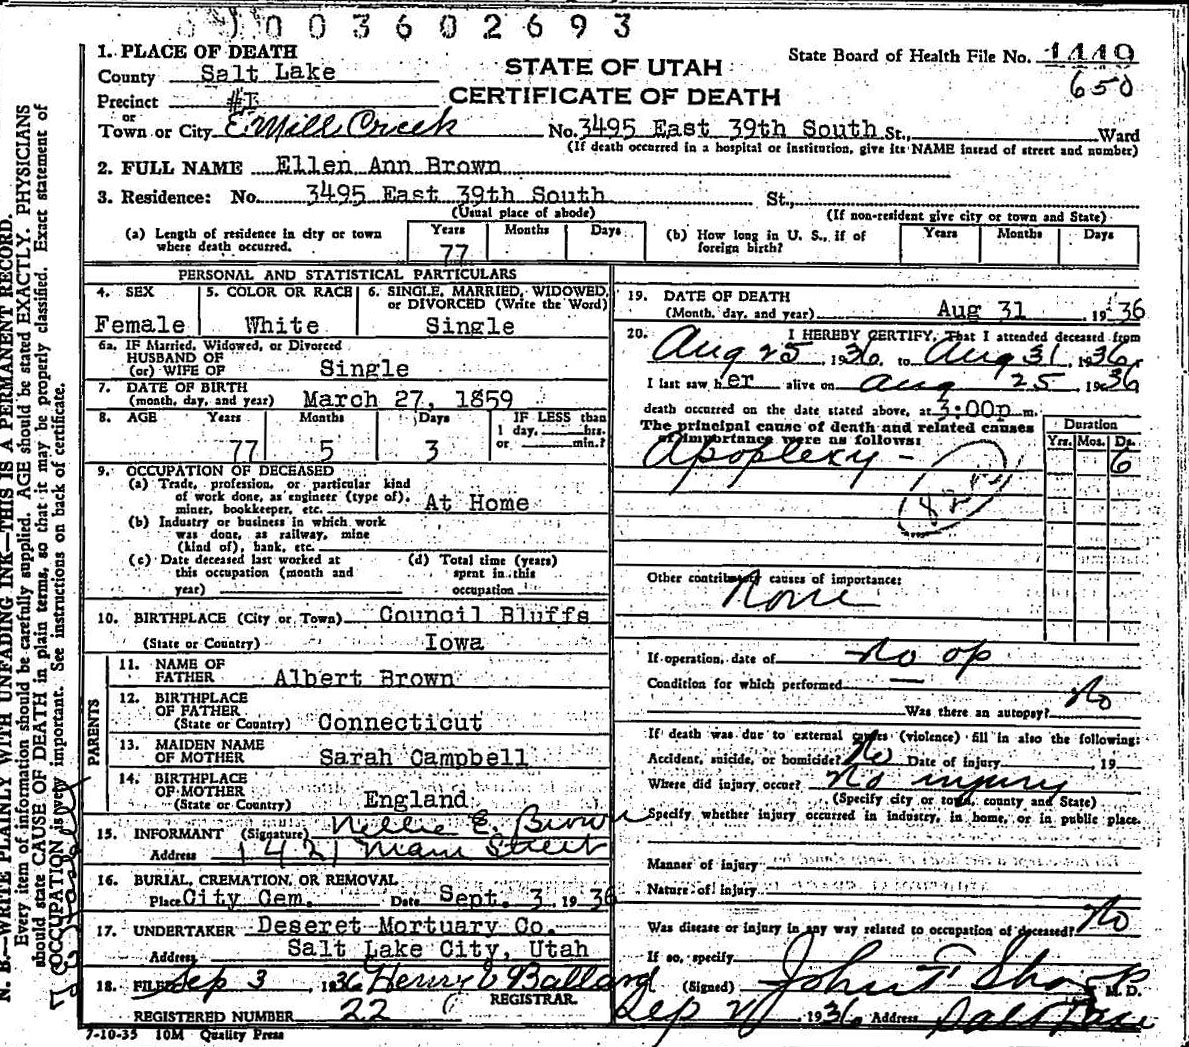 003602693
1. PLACE OF DEATH
County Salt Lake
Precinct #I
or
Town or City E. Mill Creek
STATE OF UTAH
CERTIFICATE OF DEATH
State Board of Health File No. 1449
650
No. 3495 East 39th South St., Ward
(If death occurred in a hospital or institution, give its NAME instead of street and number)
2. FULL NAME Ellen Ann Brown
3. Residence: No. 3495 East 39th South St.,
(Usual place of abode) (If non-resident give city or town and State)
(a) Length of residence in city or town where death occurred. Years 77 Months Days
(b) How long in U. S., if of foreign birth? Years Months Days
PERSONAL AND STATISTICAL PARTICULARS
4. SEX Female
5. COLOR OR RACE White
6. SINGLE, MARRIED, WIDOWED, or DIVORCED (Write the Word) Single
6a. IF Married, Widowed, or Divorced
HUSBAND OF
(or) WIFE OF Single
7. DATE OF BIRTH
(month, day, and year) March 27, 1859
8. AGE Years 77 Months 5 Days 3 IF LESS than 1 day, hrs. or min.?
9. OCCUPATION OF DECEASED
(a) Trade, profession, or particular kind
of work done, as engineer (type of),
miner, bookkeeper, etc. At Home
(b) Industry or business in which work
was done, as railway, mine
(kind of), bank, etc.
(c) Date deceased last worked at
this occupation (month and
year)
(d) Total time (years)
spent in this
occupation
10. BIRTHPLACE (City or Town) Council Bluffs
(State or Country) Iowa
PARENTS
11. NAME OF
FATHER Albert Brown
12. BIRTHPLACE
OF FATHER
(State or Country) Connecticut
13. MAIDEN NAME
OF MOTHER Sarah Campbell
14. BIRTHPLACE
OF MOTHER
(State or Country) England
15. INFORMANT (Signature) Nellie E. Brown
Address 1421 Main Street
16. BURIAL, CREMATION, OR REMOVAL
Place City Cem. Date Sept. 3, 1936
17. UNDERTAKER Deseret Mortuary Co.
Address Salt Lake City, Utah
18. FILED Sep 3 1936 Henry Ballard
REGISTRAR.
REGISTERED NUMBER 22
7-10-35 10M Quality Press
19. DATE OF DEATH
(Month, day, and year) Aug 31, 1936
20. I HEREBY CERTIFY, That I attended deceased from
Aug 25, 1936, to Aug 31, 1936,
I last saw her alive on Aug 25, 1936
death occurred on the date stated above, at 3:00p m.
The principal cause of death and related causes
of importance were as follows:
Duration
Yrs. Mos. Ds.
Apoplexy - 6
Other contributory causes of importance:
None
If operation, date of no op
Condition for which performed —
Was there an autopsy? No
If death was due to external causes (violence) fill in also the following:
Accident, suicide, or homicide? No Date of injury , 19
Where did injury occur? No injury
(Specify city or town, county and State)
Specify whether injury occurred in industry, in home, or in public place.
Manner of injury
Nature of injury
Was disease or injury in any way related to occupation of deceased? No
If so, specify
(Signed) John F. Sharp M. D.
Sep 1936 Address Salt Lake
N. B.—WRITE PLAINLY WITH UNFADING INK—THIS IS A PERMANENT RECORD.
Every item of information should be carefully supplied. AGE should be stated EXACTLY. PHYSICIANS
should state CAUSE OF DEATH in plain terms, so that it may be properly classified. Exact statement of
OCCUPATION is very important. See instructions on back of certificate.